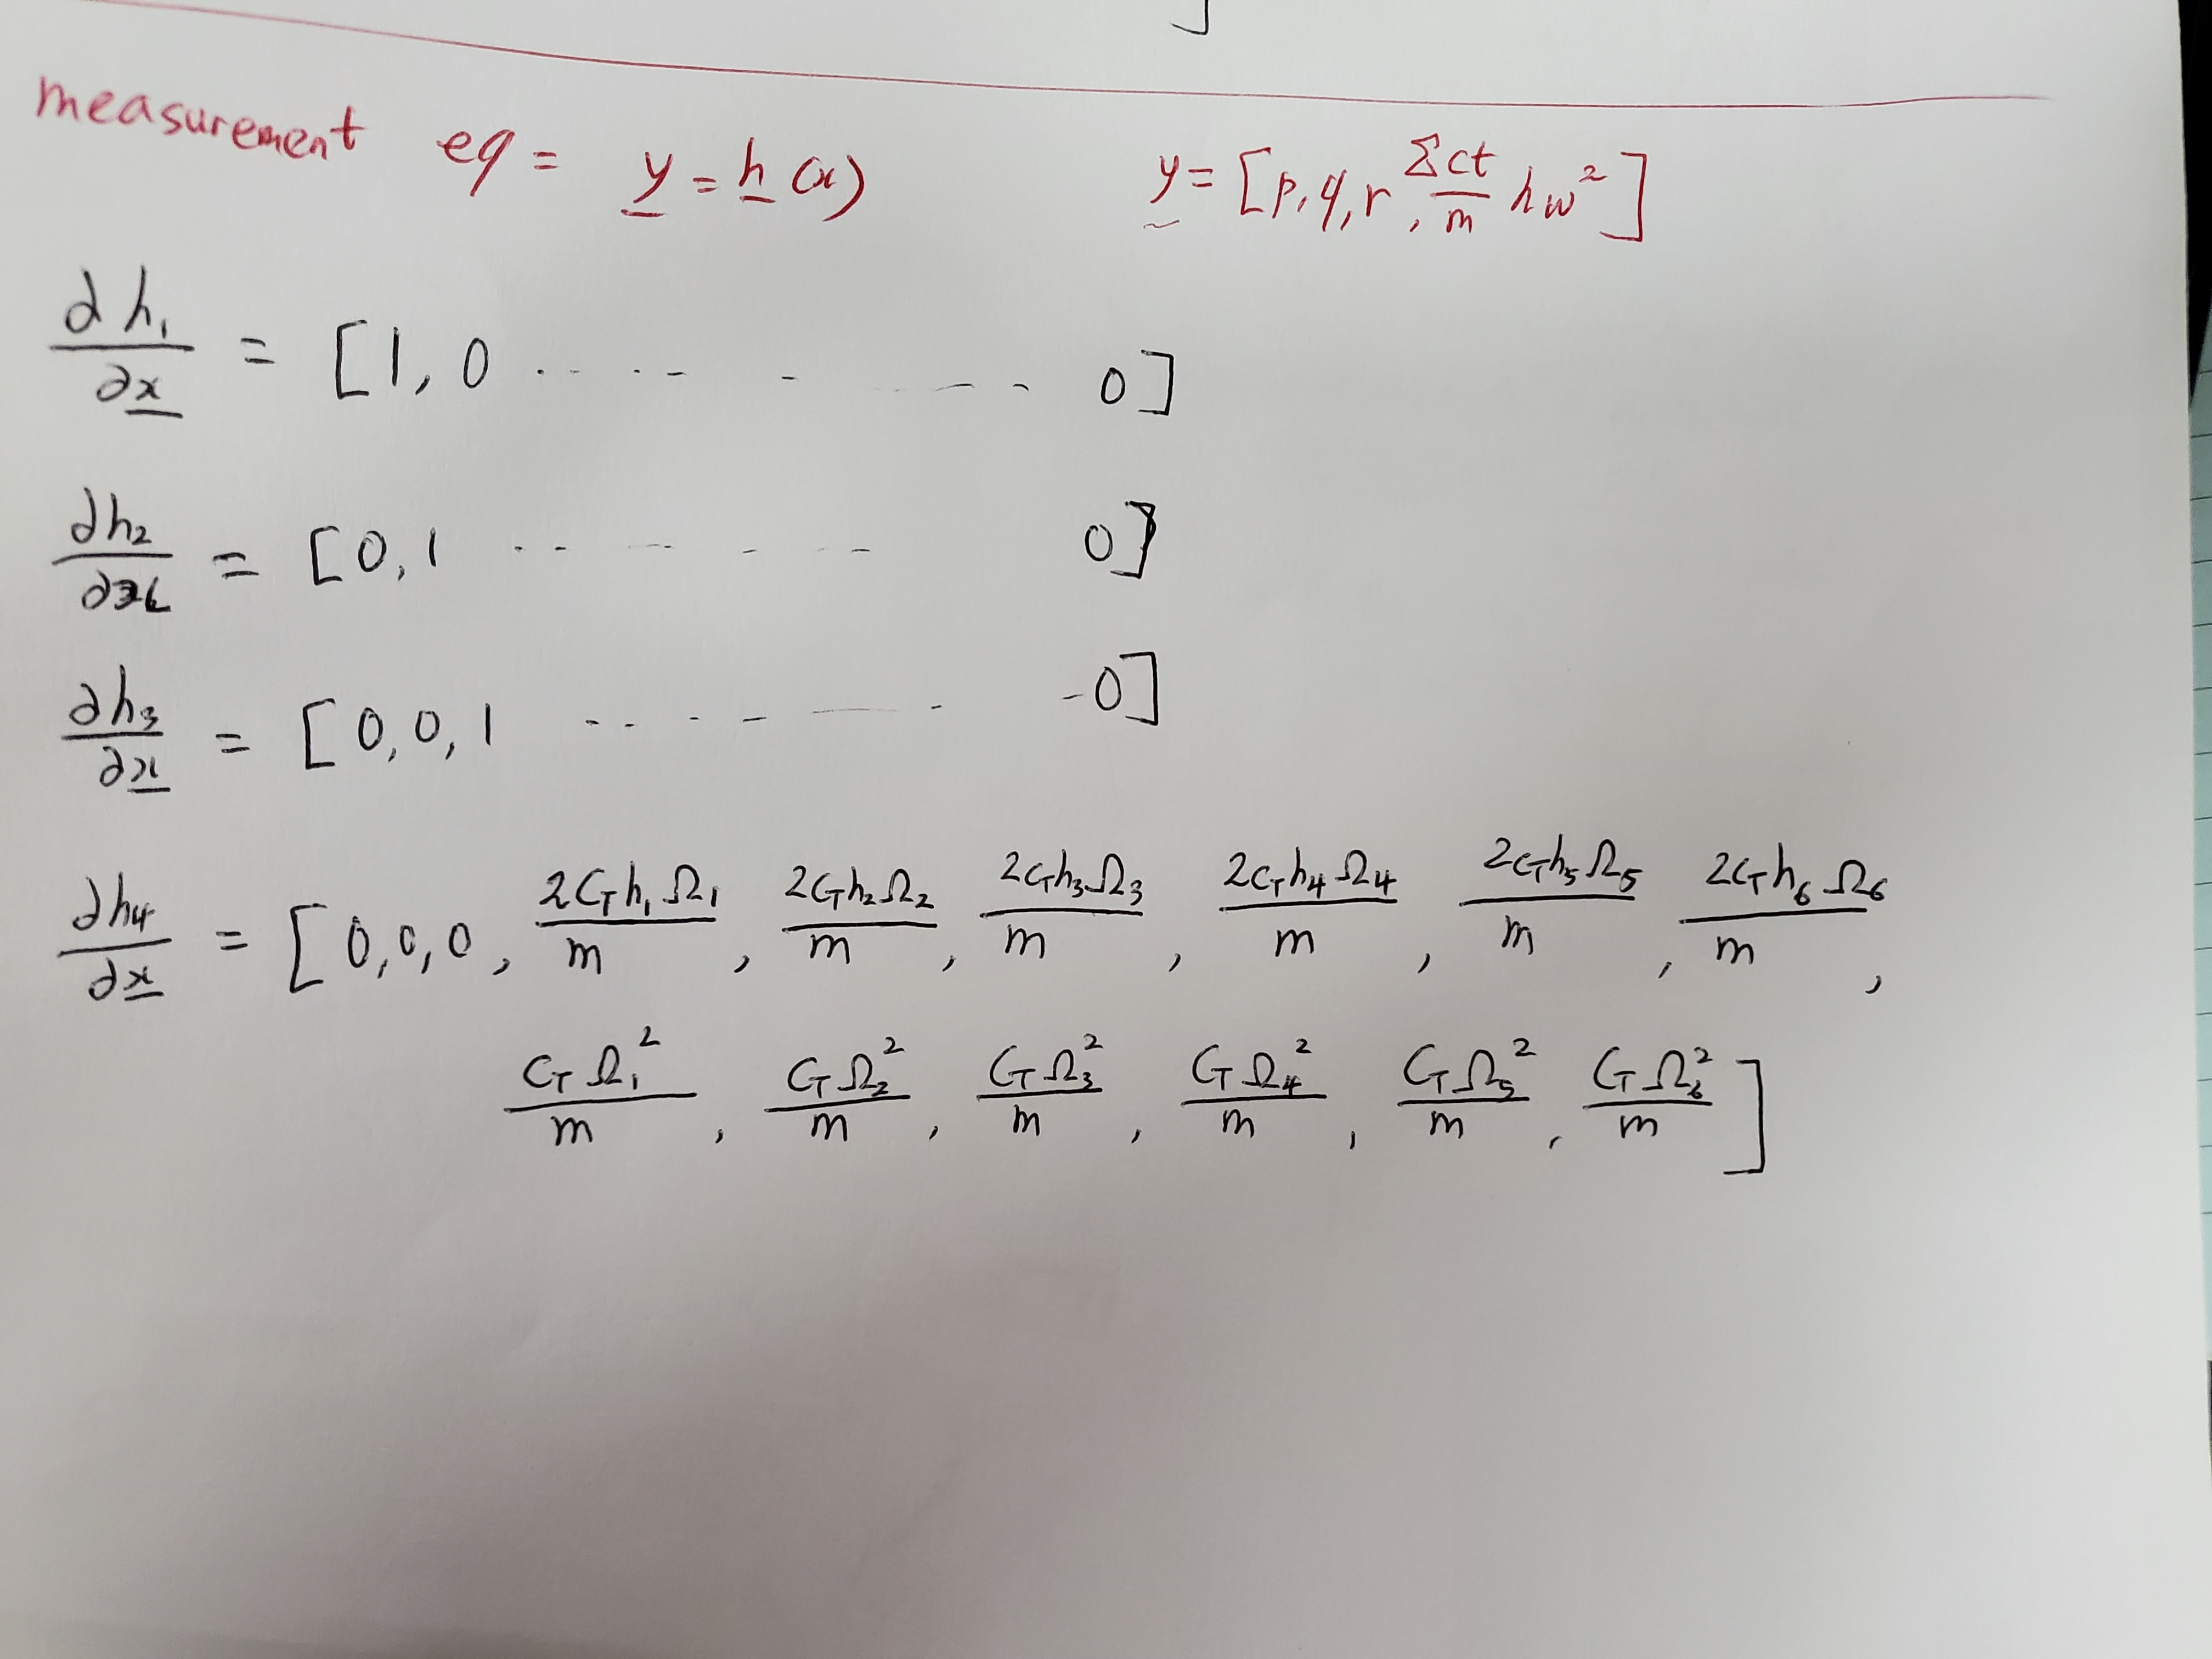 measurement eq = y = h (x) y = [p, q, r, Σct/m h w²]
∂h₁/∂x = [1, 0 ..... - - - - 0]
∂h₂/∂x = [0, 1 - - - - - - 0]
∂h₃/∂x = [0, 0, 1 - - - - - - - 0]
∂h₄/∂x = [0, 0, 0, 2C_T h₁Ω₁/m, 2C_T h₂Ω₂/m, 2C_T h₃Ω₃/m, 2C_T h₄Ω₄/m, 2C_T h₅Ω₅/m, 2C_T h₆Ω₆/m,
C_T Ω₁²/m, C_T Ω₂²/m, C_T Ω₃²/m, C_T Ω₄²/m, C_T Ω₅²/m, C_T Ω₆²/m]